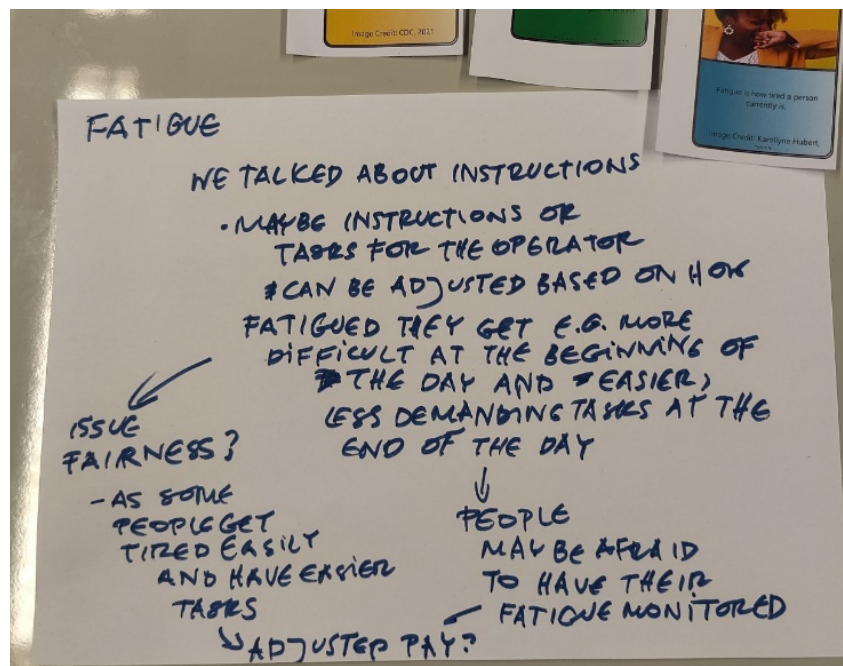 Image Credit: CDC, 2021
Fatigue is how tired a person
currently is.
Image Credit: Karollyne Hubert,
FATIGUE
WE TALKED ABOUT INSTRUCTIONS
• MAYBE INSTRUCTIONS OR
TASKS FOR THE OPERATOR
CAN BE ADJUSTED BASED ON HOW
FATIGUED THEY GET E.G. MORE
DIFFICULT AT THE BEGINNING OF
THE DAY AND EASIER,
LESS DEMANDING TASKS AT THE
END OF THE DAY
ISSUE
FAIRNESS?
- AS SOME
PEOPLE GET
TIRED EASILY
AND HAVE EASIER
TASKS
PEOPLE
MAY BE AFRAID
TO HAVE THEIR
FATIGUE MONITORED
ADJUSTED PAY?